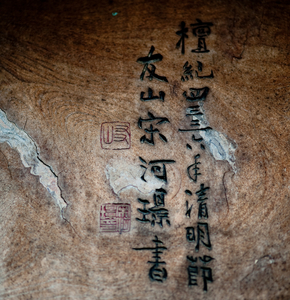 檀紀四三三六年清明節
友山宋河璟書